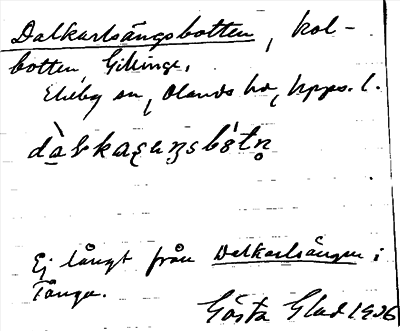 Dalkarlsängsbotten, kol-
botten, Gihinge,
Ekeby sn, Olands hd, Upps. l.
Ej långt från Dalkarlsängen i
Tånga.
Gösta Glad 1926